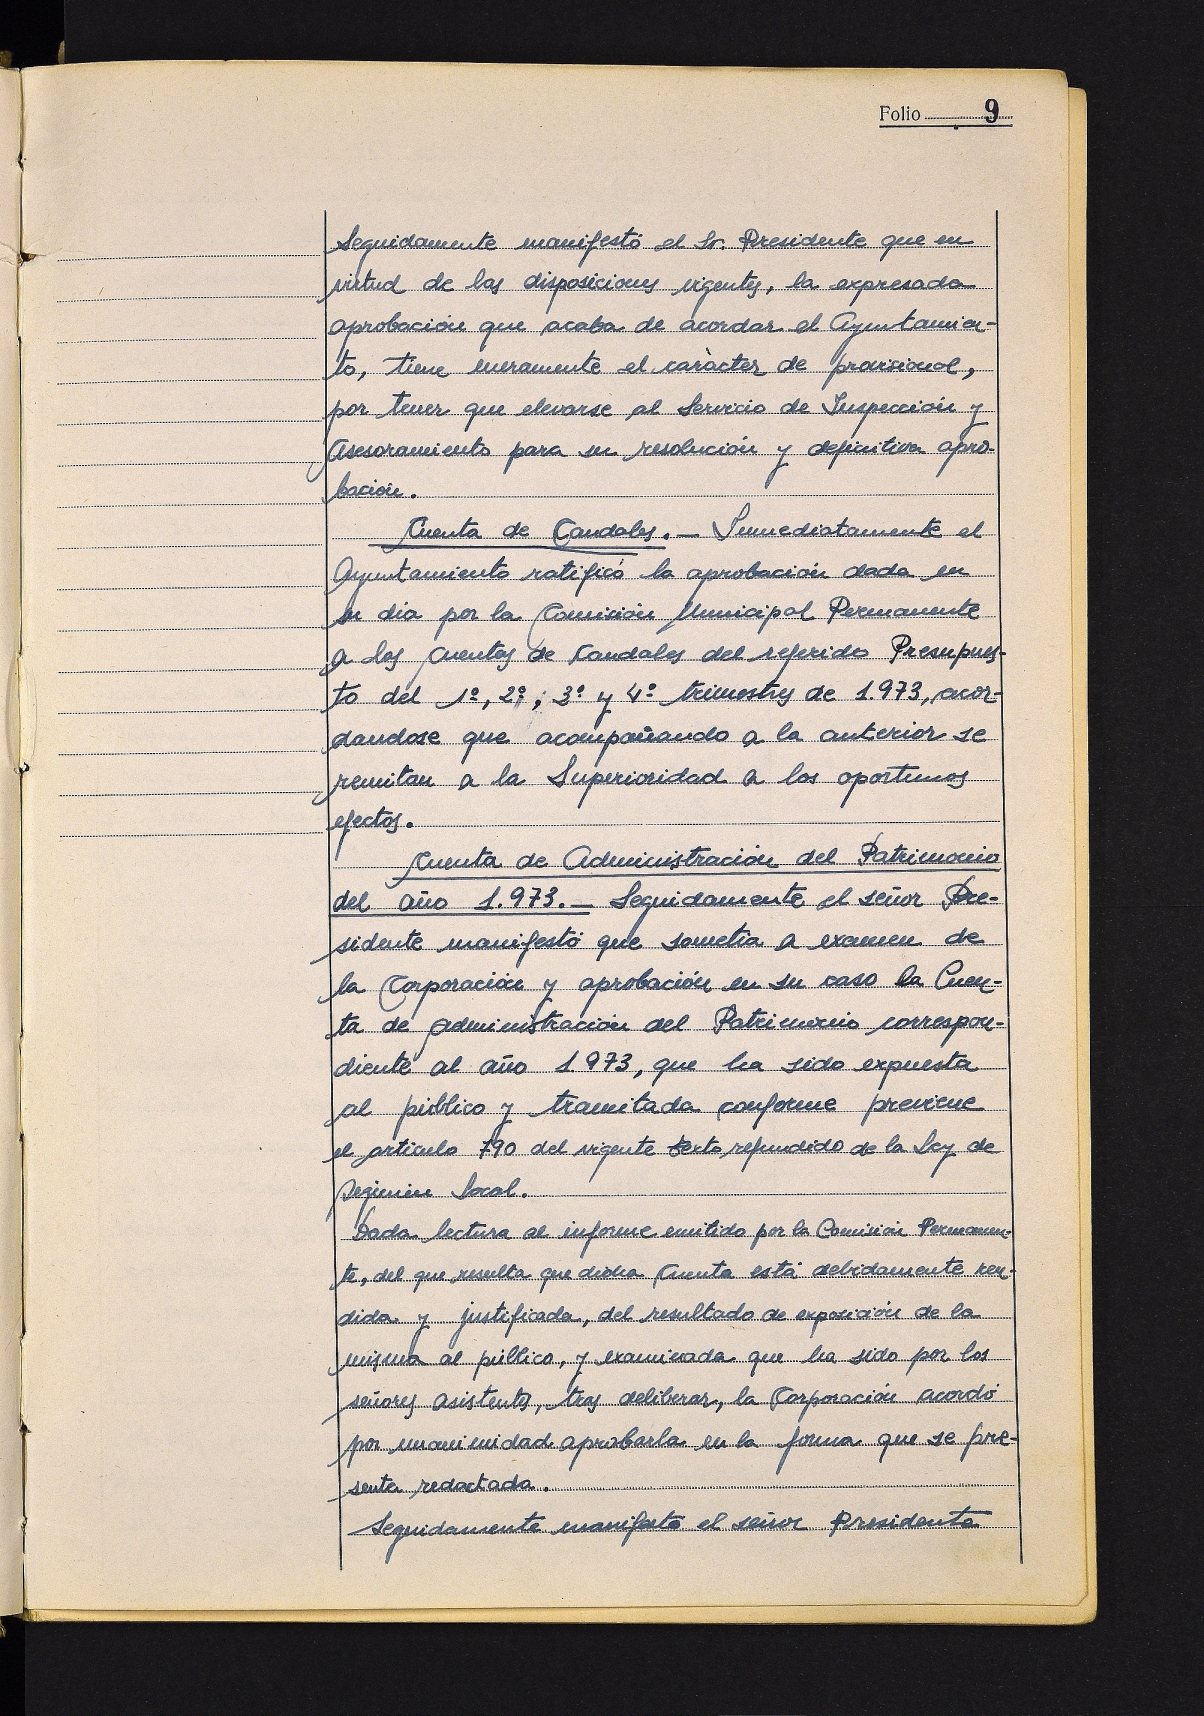 Folio 9
Seguidamente manifestó el Sr. Presidente que en
virtud de las disposiciones vigentes, la expresada
aprobación que acaba de acordar el Ayuntamien-
to, tiene meramente el carácter de provisional,
por tener que elevarse al Servicio de Inspección y
Asesoramiento para su resolución y definitiva apro-
bación.
Cuenta de Caudales. — Inmediatamente el
Ayuntamiento ratificó la aprobación dada en
su dia por la Comisión Municipal Permanente
a las cuentas de Caudales del referido Presupues-
to del 1º, 2º, 3º y 4º trimestres de 1.973, acor-
dandose que acompañando a la anterior se
remitan a la Superioridad a los oportunos
efectos.
Cuenta de Administración del Patrimonio
del año 1.973. — Seguidamente el señor Pre-
sidente manifestó que sometia a examen de
la Corporación y aprobación en su caso la Cuen-
ta de administración del Patrimonio correspon-
diente al año 1973, que ha sido expuesta
al público y tramitada conforme previene
el articulo 790 del vigente texto refundido de la Ley de
Regimen Local.
Dada lectura al informe emitido por la Comisión Permanen-
te, del que resulta que dicha Cuenta está debidamente ren-
dida y justificada, del resultado de exposición de la
misma al público, y examinada que ha sido por los
señores asistentes, tras deliberar, la Corporación acordó
por unanimidad aprobarla en la forma que se pre-
senta redactada.
Seguidamente manifestó el señor Presidente